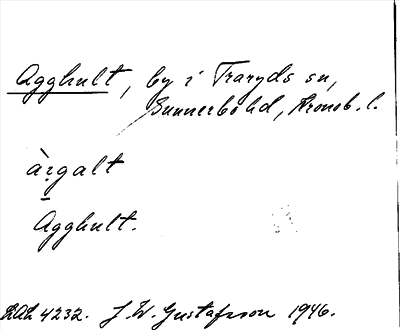 Agghult, by i Traryds sn,
Sunnerbo hd, Kronob. l.
àrgalt
Agghult.
RAÄ 4232. J. W. Gustafsson 1946.